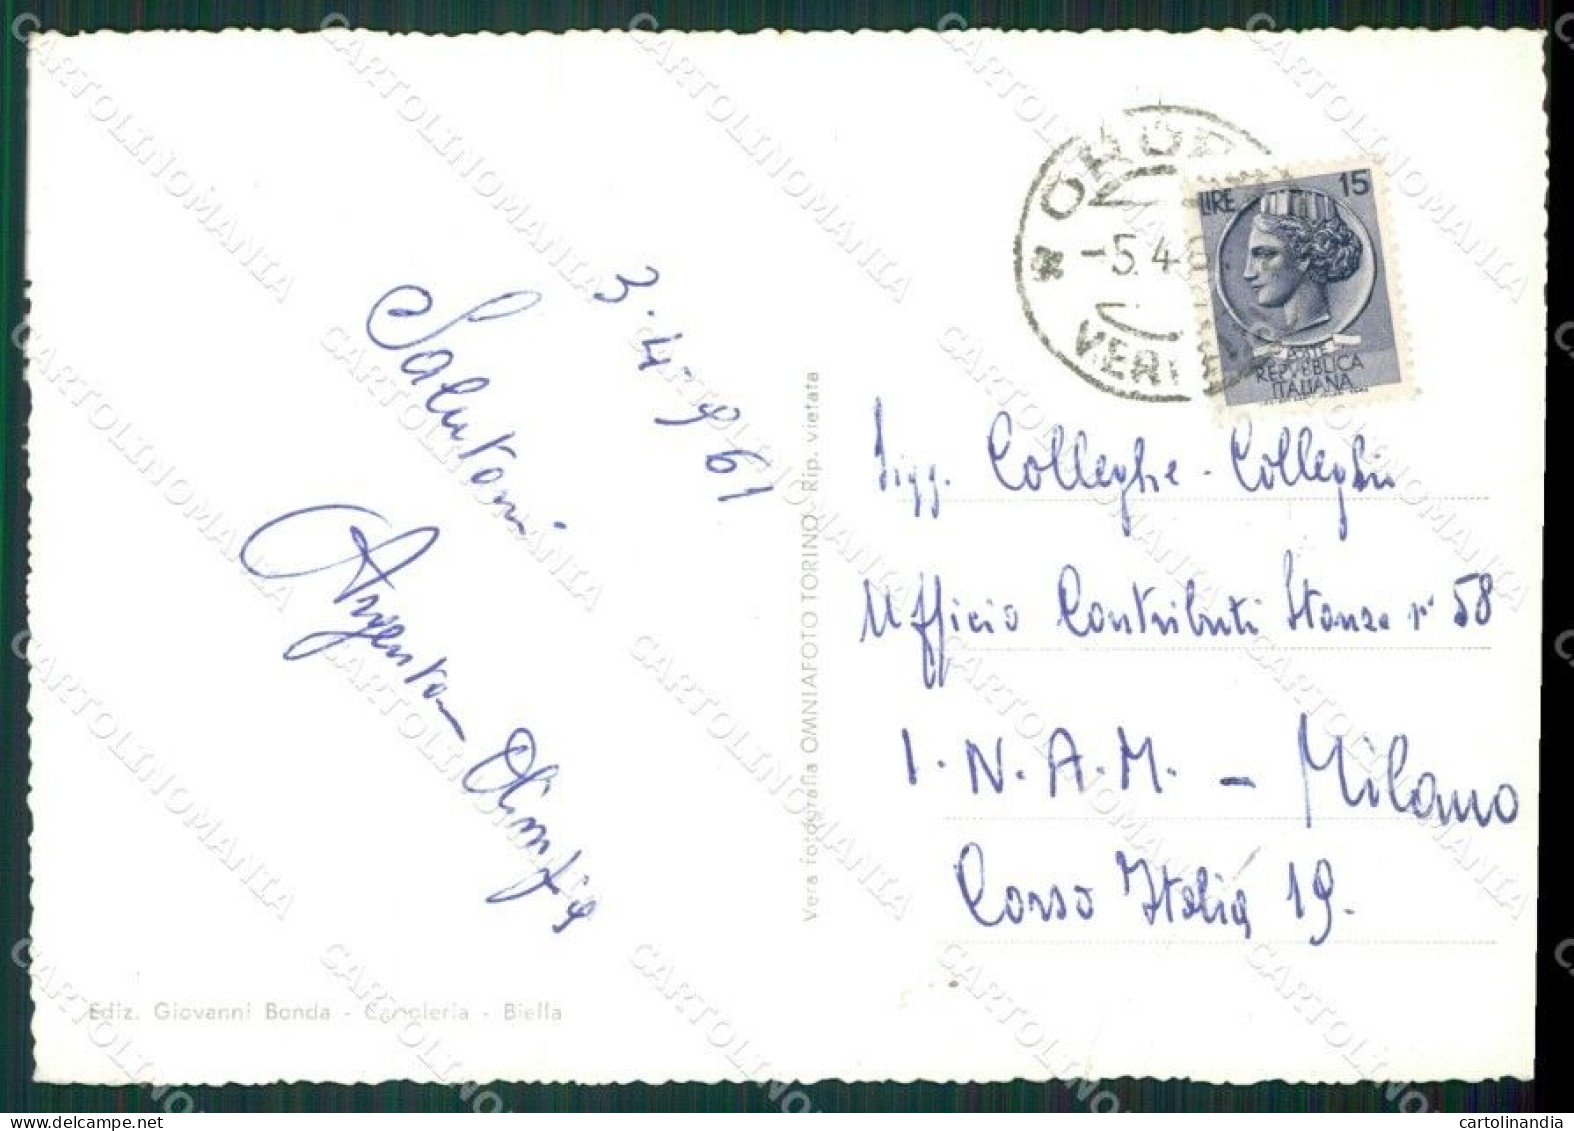 3-4-961
Salutoni
Argenton Olimpia
Ediz. Giovanni Bonda - Cartoleria - Biella
Vera fotografia OMNIAFOTO TORINO - Rip. vietata
OROP
-5.4
VER
LIRE 15
POSTE
REPVBBLICA
ITALIANA
Sigg. Colleghe - Colleghi
Ufficio Contributi Stanza n° 58
I.N.A.M. - Milano
Corso Italia 19.
CARTOLINOMANIA
cartolinandia